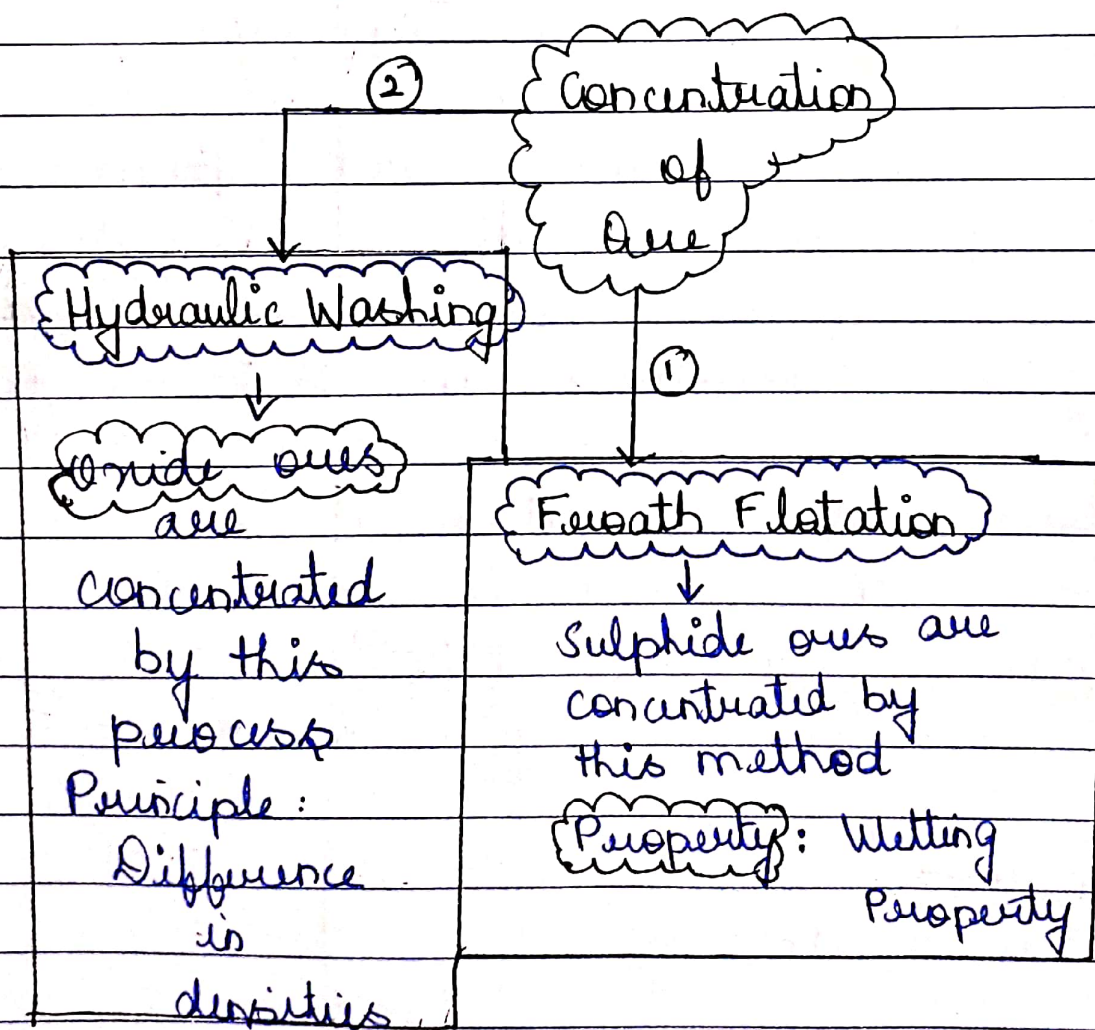 Concentration
of
Ore
②
①
Hydraulic Washing
Oxide ores
are
concentrated
by this
process
Principle:
Difference
in
densities
Froath Flotation
Sulphide ores are
concentrated by
this method
Property: Wetting
Property